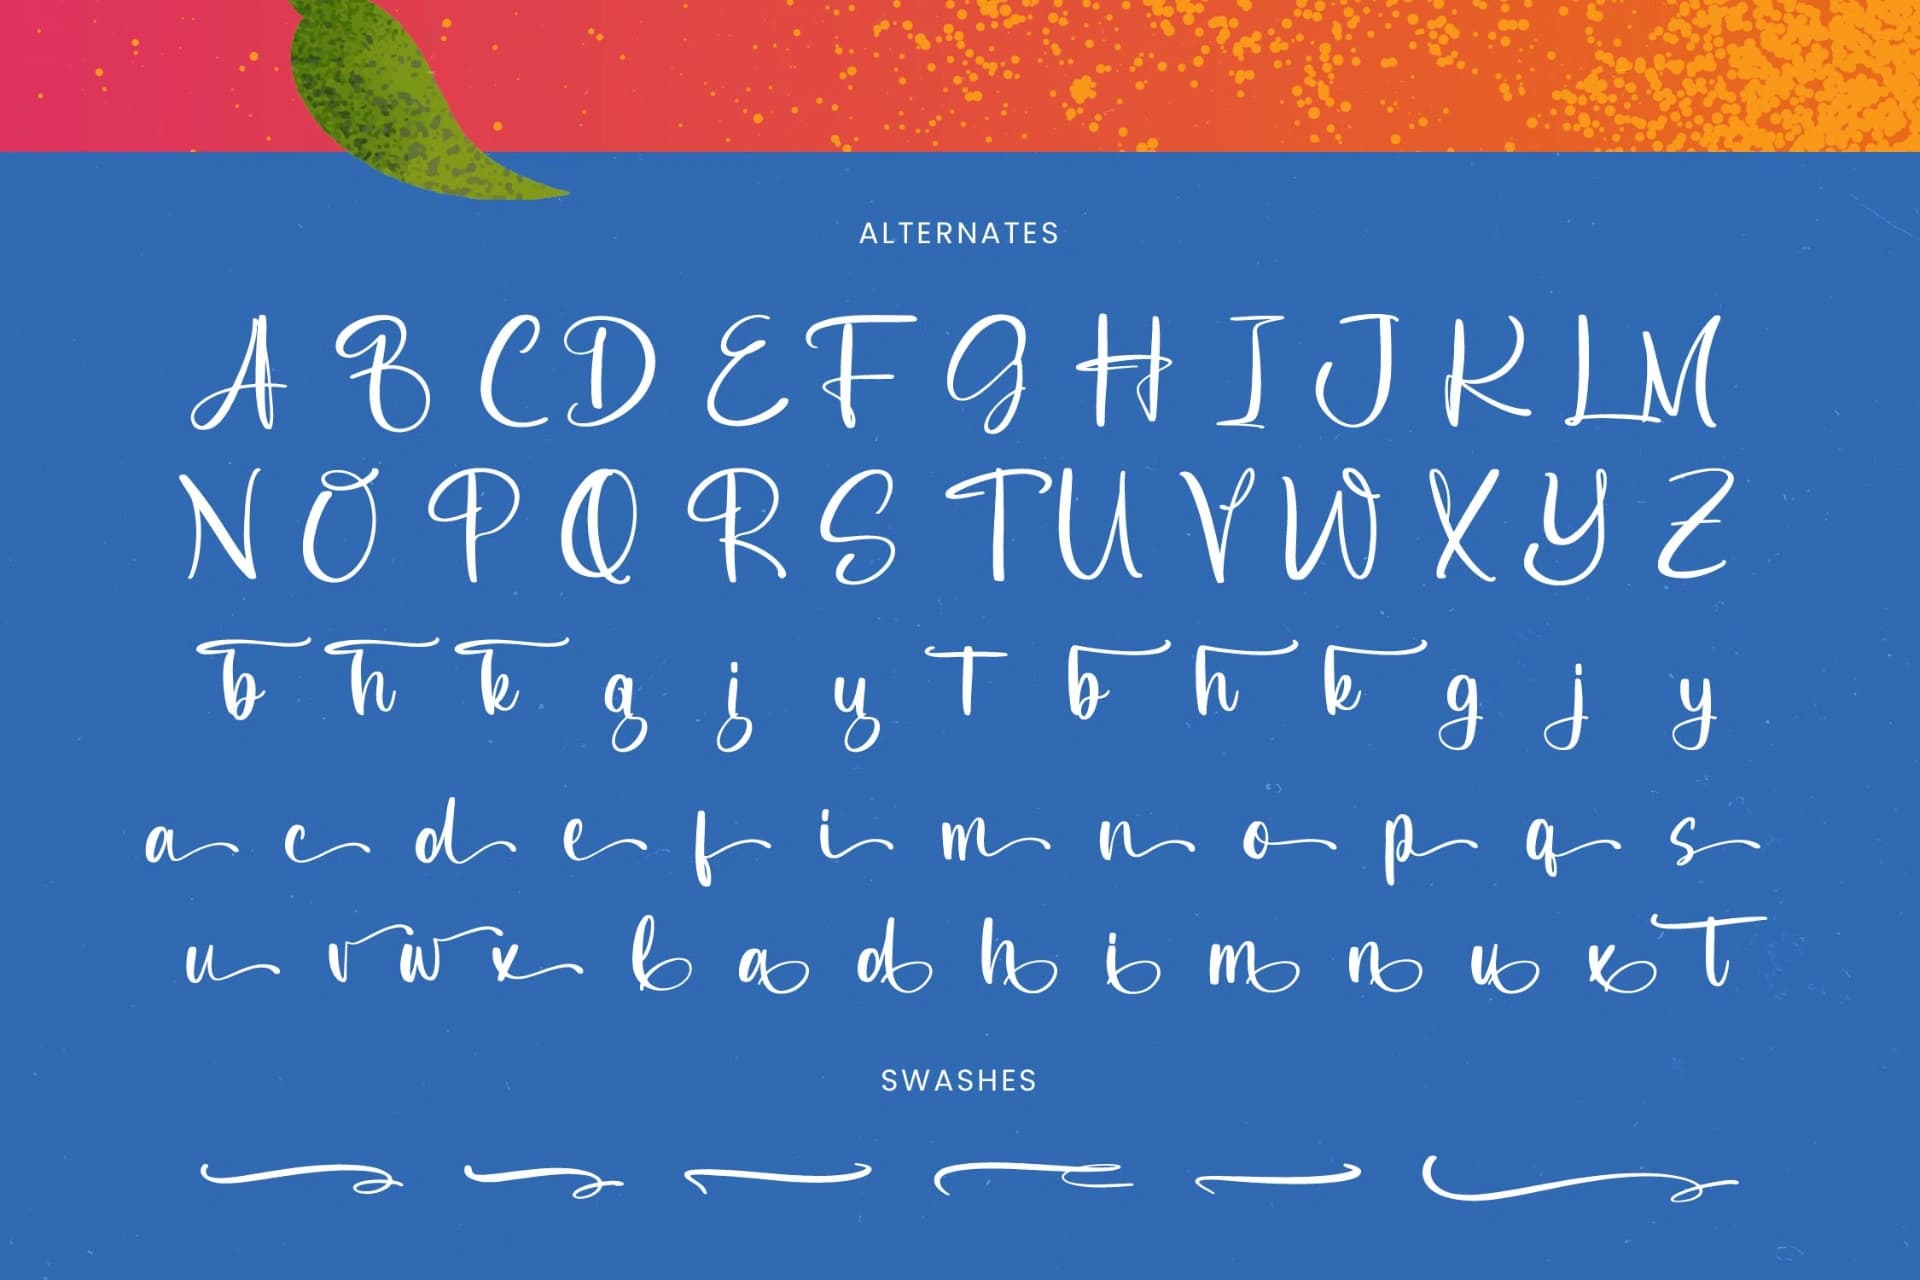 ALTERNATES
A B C D E F G H I J K L M
N O P Q R S T U V W X Y Z
b h k g j y t b h k g j y
a c d e f i m n o p q s
u v w x b a d h i m n u x t
SWASHES